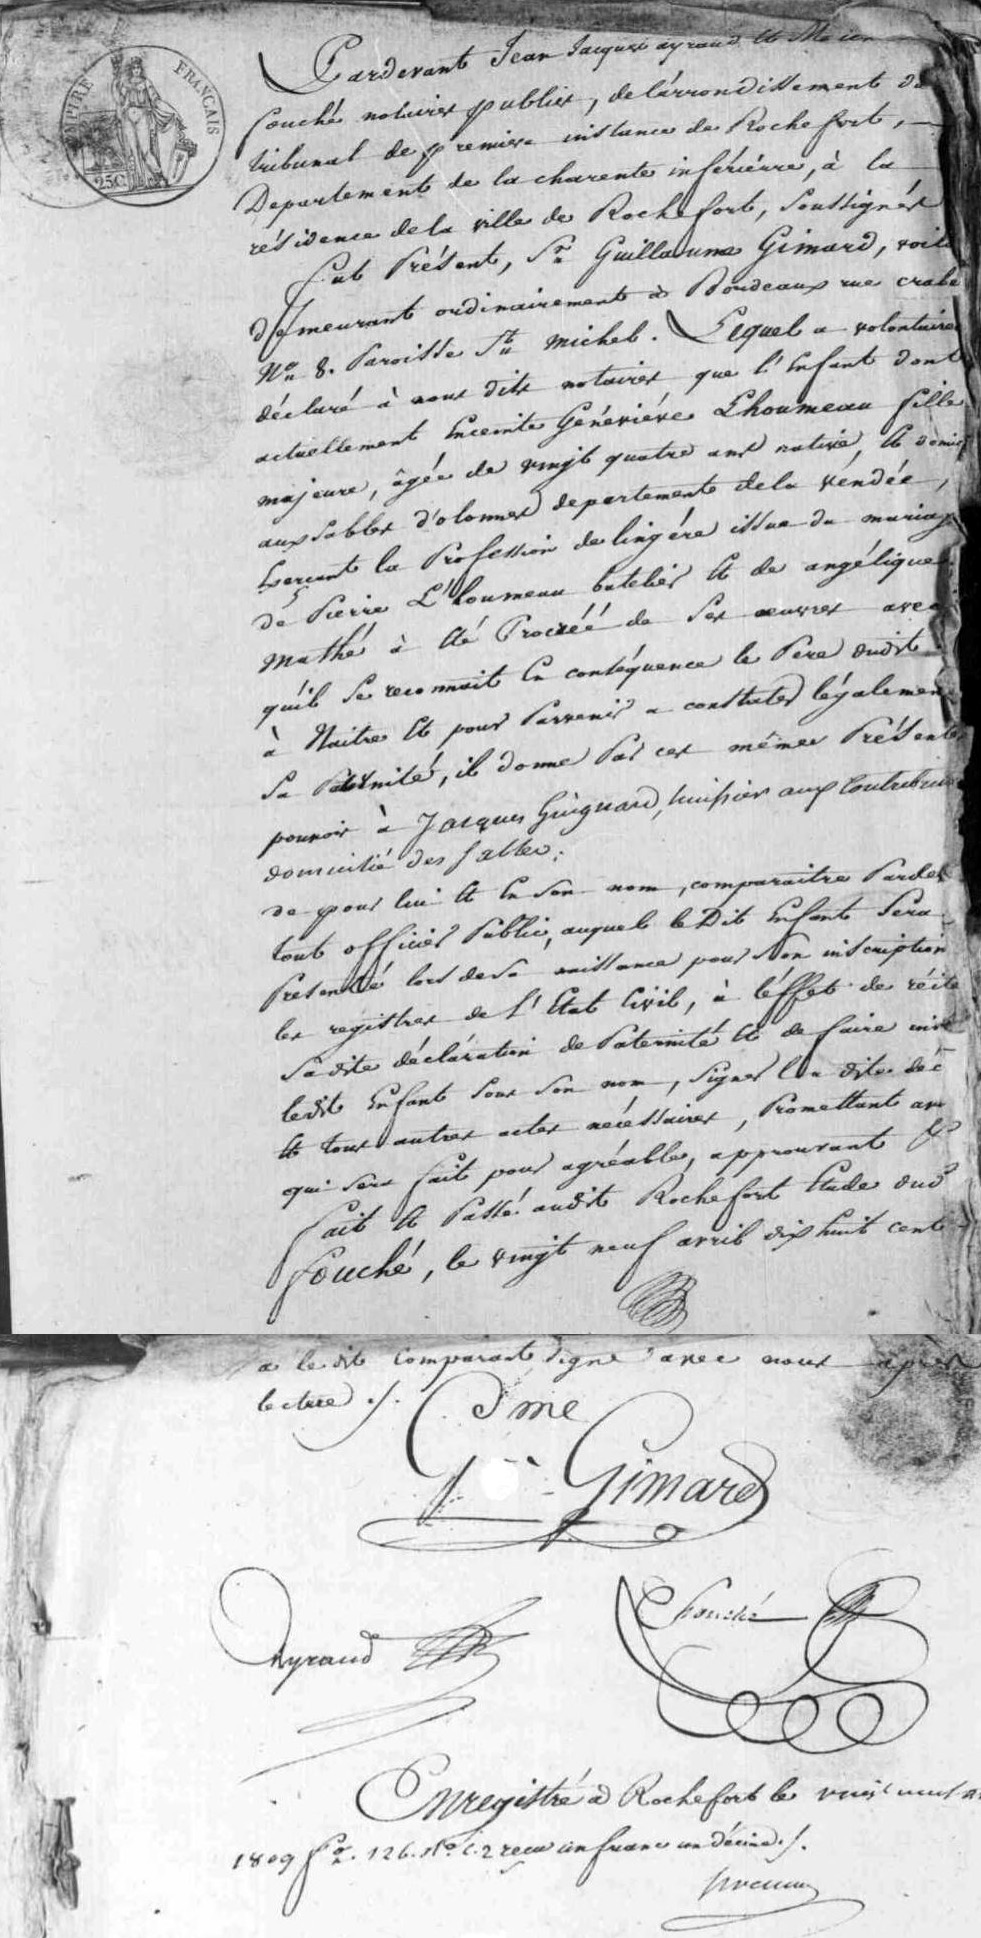 EMPIRE FRANÇAIS
25C
Pardevant Jean Jacques ayraud et
fouché notaires publics, de l'arrondissement du
tribunal de premiere instance de Rochefort,
Departement de la charente inférièrre, à la
résidence de la ville de Rochefort, soussignés
fut Présent, Sr Guillaume Gimard, voili
demeurant ordinairement à Bordeaux rue
No 8. Paroisse St michel. Lequel a volontaire
déclaré à nous dits notaires que l'Enfant dont
actuellement Enceinte Généviéve Lhoumeau fille
majeure, âgée de vingt quatre ans native, et domic
aux sables d'olonnes departement de la véndée,
Exercant la Profession de lingére issue du mariag
de Pierre L'houmeau batelier et de angélique
Mathé à été Procréé de ses œuvres avec
qu'il se reconnait En conséquence le Pere dudit
à Naitre et pour Parvenir a constater légalemen
sa Paternité, il donne Par ces mêmes Présente
pouvoir à Jacques Guignard, huissier aux Contributi
domicilié des sables;
de pour lui et En son nom, comparaitre Pardev
tout officier Public, auquel le Dit Enfant sera
Presenté lors de sa naissance pour son inscription
les registres de l'Etat Civil, à l'éffet de réité
sa dite déclaration de Paternité et de faire insc
ledit Enfant sous son nom, signer la dite déc
et tous autres actes nécéssaires, Promettant av
qui sera fait pour agréable, approuvant &
fait et Passé audit Rochefort Etude dud
fouché, le vingt neuf avril dix huit cent
a le dit Comparant signé avec nous après
lecture ./.
Gme Gimard
Ayraud
Fouché
Enregistré à Rochefort le vingt neuf
1809 fo. 126. Ro. C. 2 reçu un franc un décime ./.